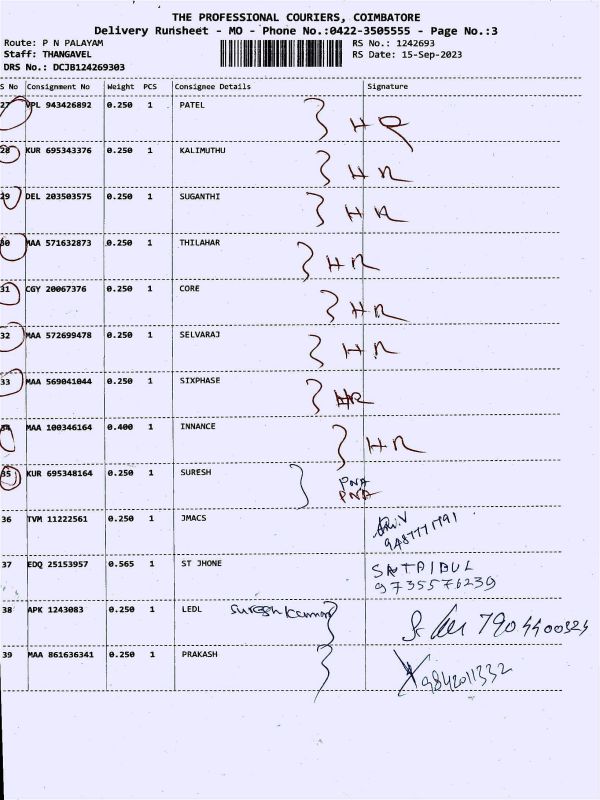 THE PROFESSIONAL COURIERS, COIMBATORE
Delivery Runsheet - MO - Phone No.:0422-3505555 - Page No.:3
Route: P N PALAYAM RS No.: 1242693
Staff: THANGAVEL RS Date: 15-Sep-2023
DRS No.: DCJB124269303
S No Consignment No Weight PCS Consignee Details Signature
27 VPL 943426892 0.250 1 PATEL
HR
28 KUR 695343376 0.250 1 KALIMUTHU
HR
29 DEL 203503575 0.250 1 SUGANTHI
HR
30 MAA 571632873 0.250 1 THILAHAR
HR
31 CGY 20067376 0.250 1 CORE
HR
32 MAA 572699478 0.250 1 SELVARAJ
HR
33 MAA 569041044 0.250 1 SIXPHASE
HR
34 MAA 100346164 0.400 1 INNANCE
HR
35 KUR 695348164 0.250 1 SURESH
PNA
PNA
36 TVM 11222561 0.250 1 JMACS
37 EDQ 25153957 0.565 1 ST JHONE
SATPIBUL
9735576239
38 APK 1243083 0.250 1 LEDL Sureshkumar
39 MAA 861636341 0.250 1 PRAKASH
9842011332